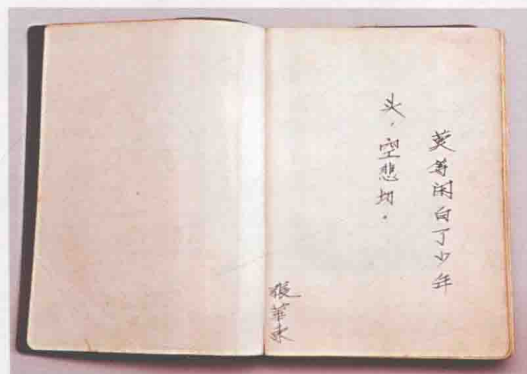 莫等闲白了少年
头，空悲切。
张华东